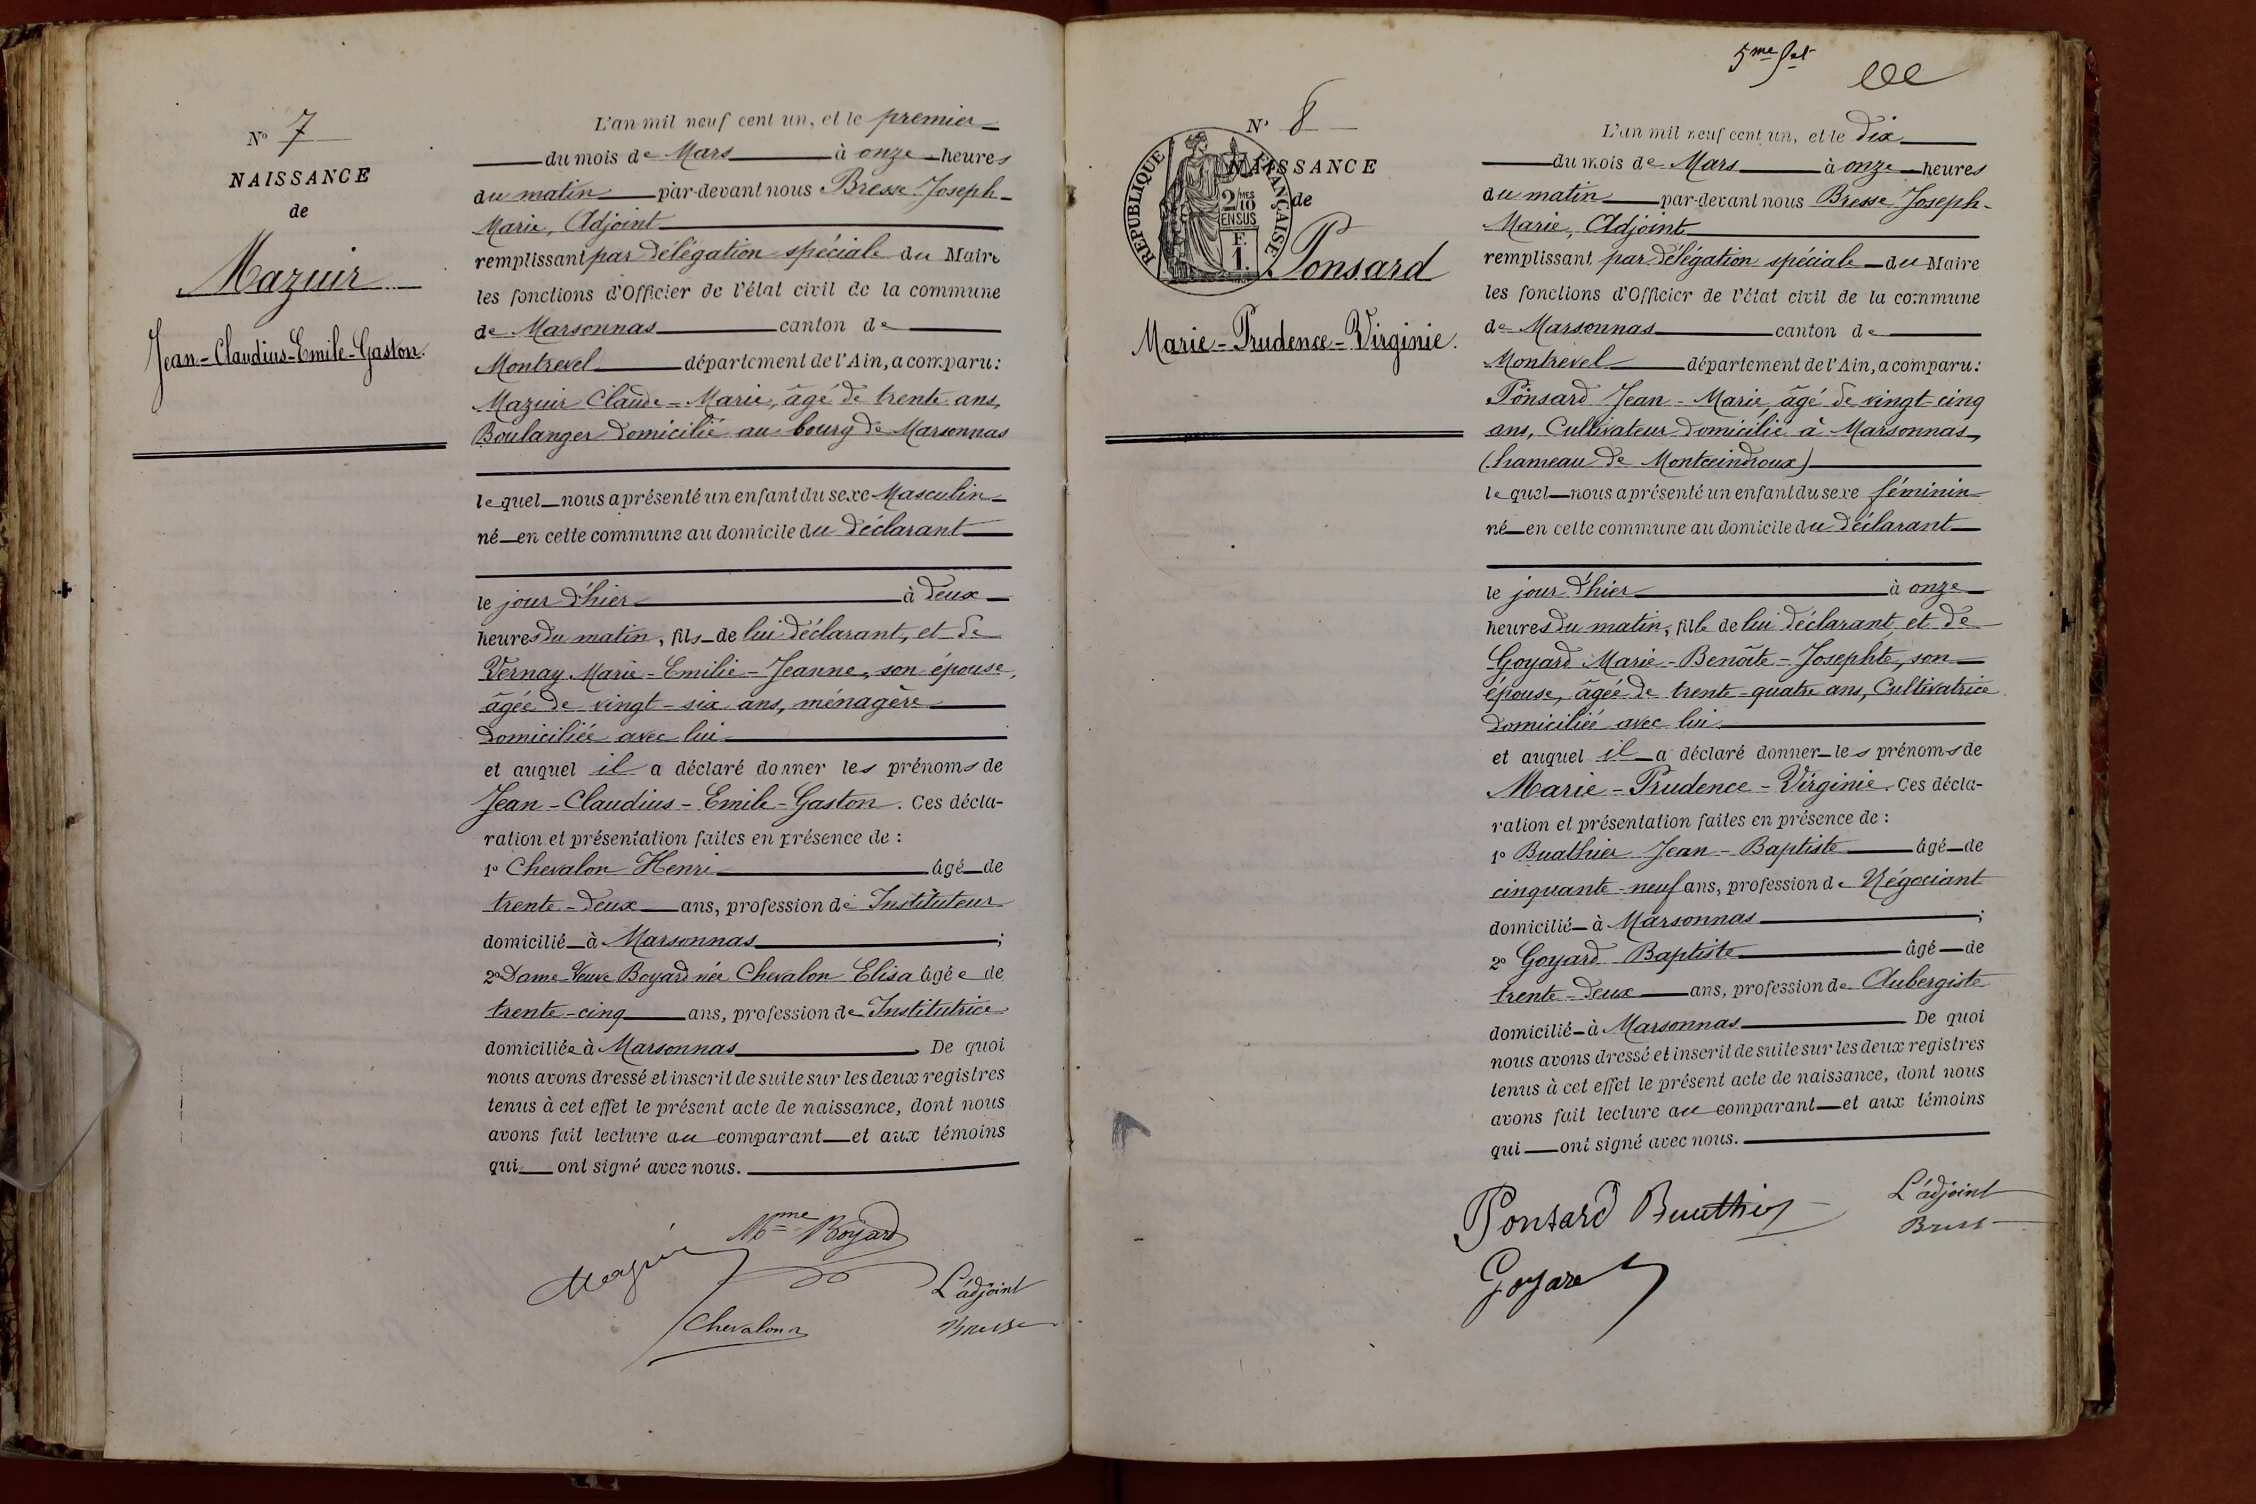 N° 7
NAISSANCE
de
Mazuir
Jean-Claudius-Emile-Gaston.
L'an mil neuf cent un, et le premier
du mois de Mars à onze heures
du matin par-devant nous Bresse Joseph-
Marie, Adjoint
remplissant par délégation spéciale du Maire
les fonctions d'Officier de l'état civil de la commune
de Marsonnas canton de
Montrevel département de l'Ain, a comparu:
Mazuir Claude-Marie, âgé de trente ans,
Boulanger domicilié au bourg de Marsonnas
lequel nous a présenté un enfant du sexe Masculin
né en cette commune au domicile du déclarant
le jour d'hier à deux
heures du matin, fils de lui déclarant, et de
Vernay Marie-Emilie-Jeanne, son épouse,
âgée de vingt-six ans, ménagère
domiciliée avec lui
et auquel il a déclaré donner les prénoms de
Jean-Claudius-Emile-Gaston. Ces décla-
ration et présentation faites en présence de :
1° Chevalon Henri âgé de
trente-deux ans, profession de Instituteur
domicilié à Marsonnas ;
2° Dame Veuve Boyard née Chevalon Elisa âgée de
trente-cinq ans, profession de Institutrice
domiciliée à Marsonnas. De quoi
nous avons dressé et inscrit de suite sur les deux registres
tenus à cet effet le présent acte de naissance, dont nous
avons fait lecture au comparant et aux témoins
qui ont signé avec nous.
Mme Boyard
Mazuir
L'adjoint
Chevalon
Bresse
5me
N° 8
NAISSANCE
de
REPUBLIQUE FRANÇAISE
2/10 MES
EN SUS
F.
1.
Ponsard
Marie-Prudence-Virginie.
L'an mil neuf cent un, et le dix
du mois de Mars à onze heures
du matin par-devant nous Bresse Joseph-
Marie, Adjoint
remplissant par délégation spéciale du Maire
les fonctions d'Officier de l'état civil de la commune
de Marsonnas canton de
Montrevel département de l'Ain, a comparu:
Ponsard Jean-Marie, âgé de vingt-cinq
ans, Cultivateur domicilié à Marsonnas,
(hameau de Montceindroux)
lequel nous a présenté un enfant du sexe féminin
né en cette commune au domicile du déclarant
le jour d'hier à onze
heures du matin, fille de lui déclarant, et de
Goyard Marie-Benoîte-Josephte, son
épouse, âgée de trente-quatre ans, Cultivatrice
domiciliée avec lui
et auquel il a déclaré donner les prénoms de
Marie-Prudence-Virginie. Ces décla-
ration et présentation faites en présence de :
1° Buathier Jean-Baptiste âgé de
cinquante-neuf ans, profession de Négociant
domicilié à Marsonnas ;
2° Goyard Baptiste âgé de
trente-deux ans, profession de Aubergiste
domicilié à Marsonnas De quoi
nous avons dressé et inscrit de suite sur les deux registres
tenus à cet effet le présent acte de naissance, dont nous
avons fait lecture au comparant et aux témoins
qui ont signé avec nous.
Ponsard Buathier
L'adjoint
Bresse
Goyard